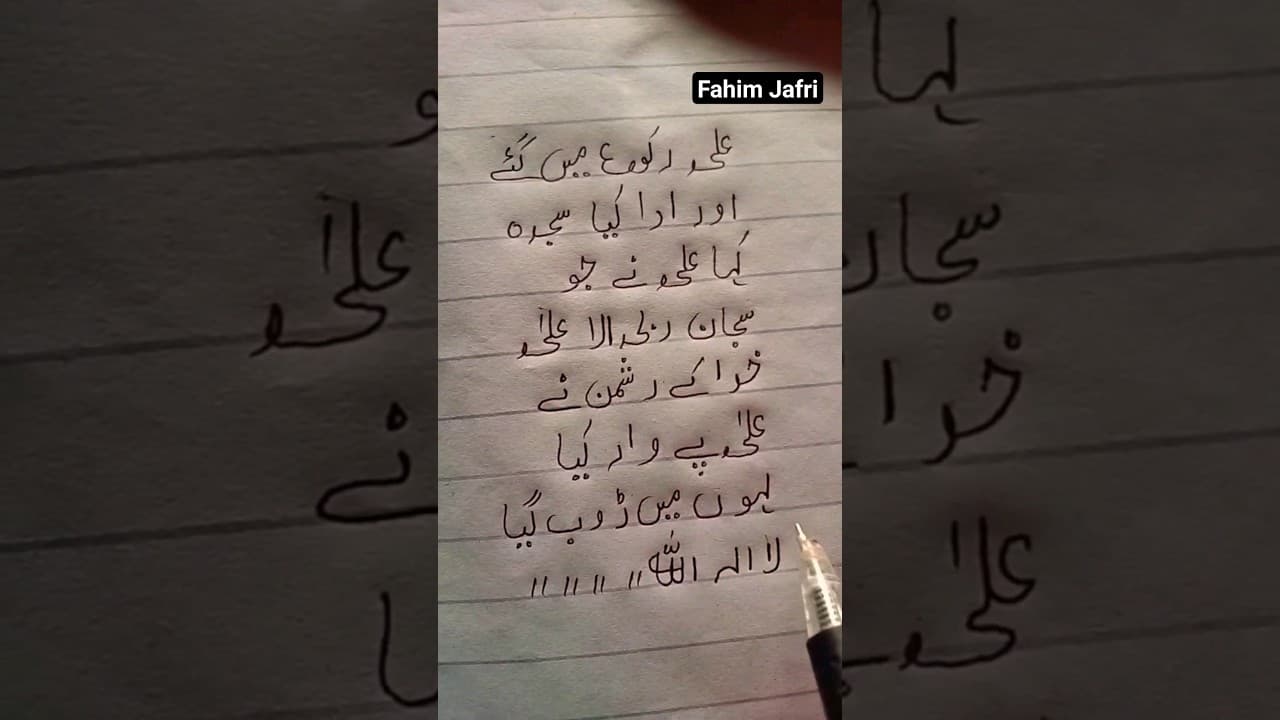 Fahim Jafri
علی رکوع میں گئے
اور ادا کیا سجدہ
کہا علی نے جو
سبحان ربی الا علیٰ
خدا کے دشمن نے
علی پے وار کیا
لہوں میں ڈوب گیا
لا الہ اللہ〃 〃 〃 〃